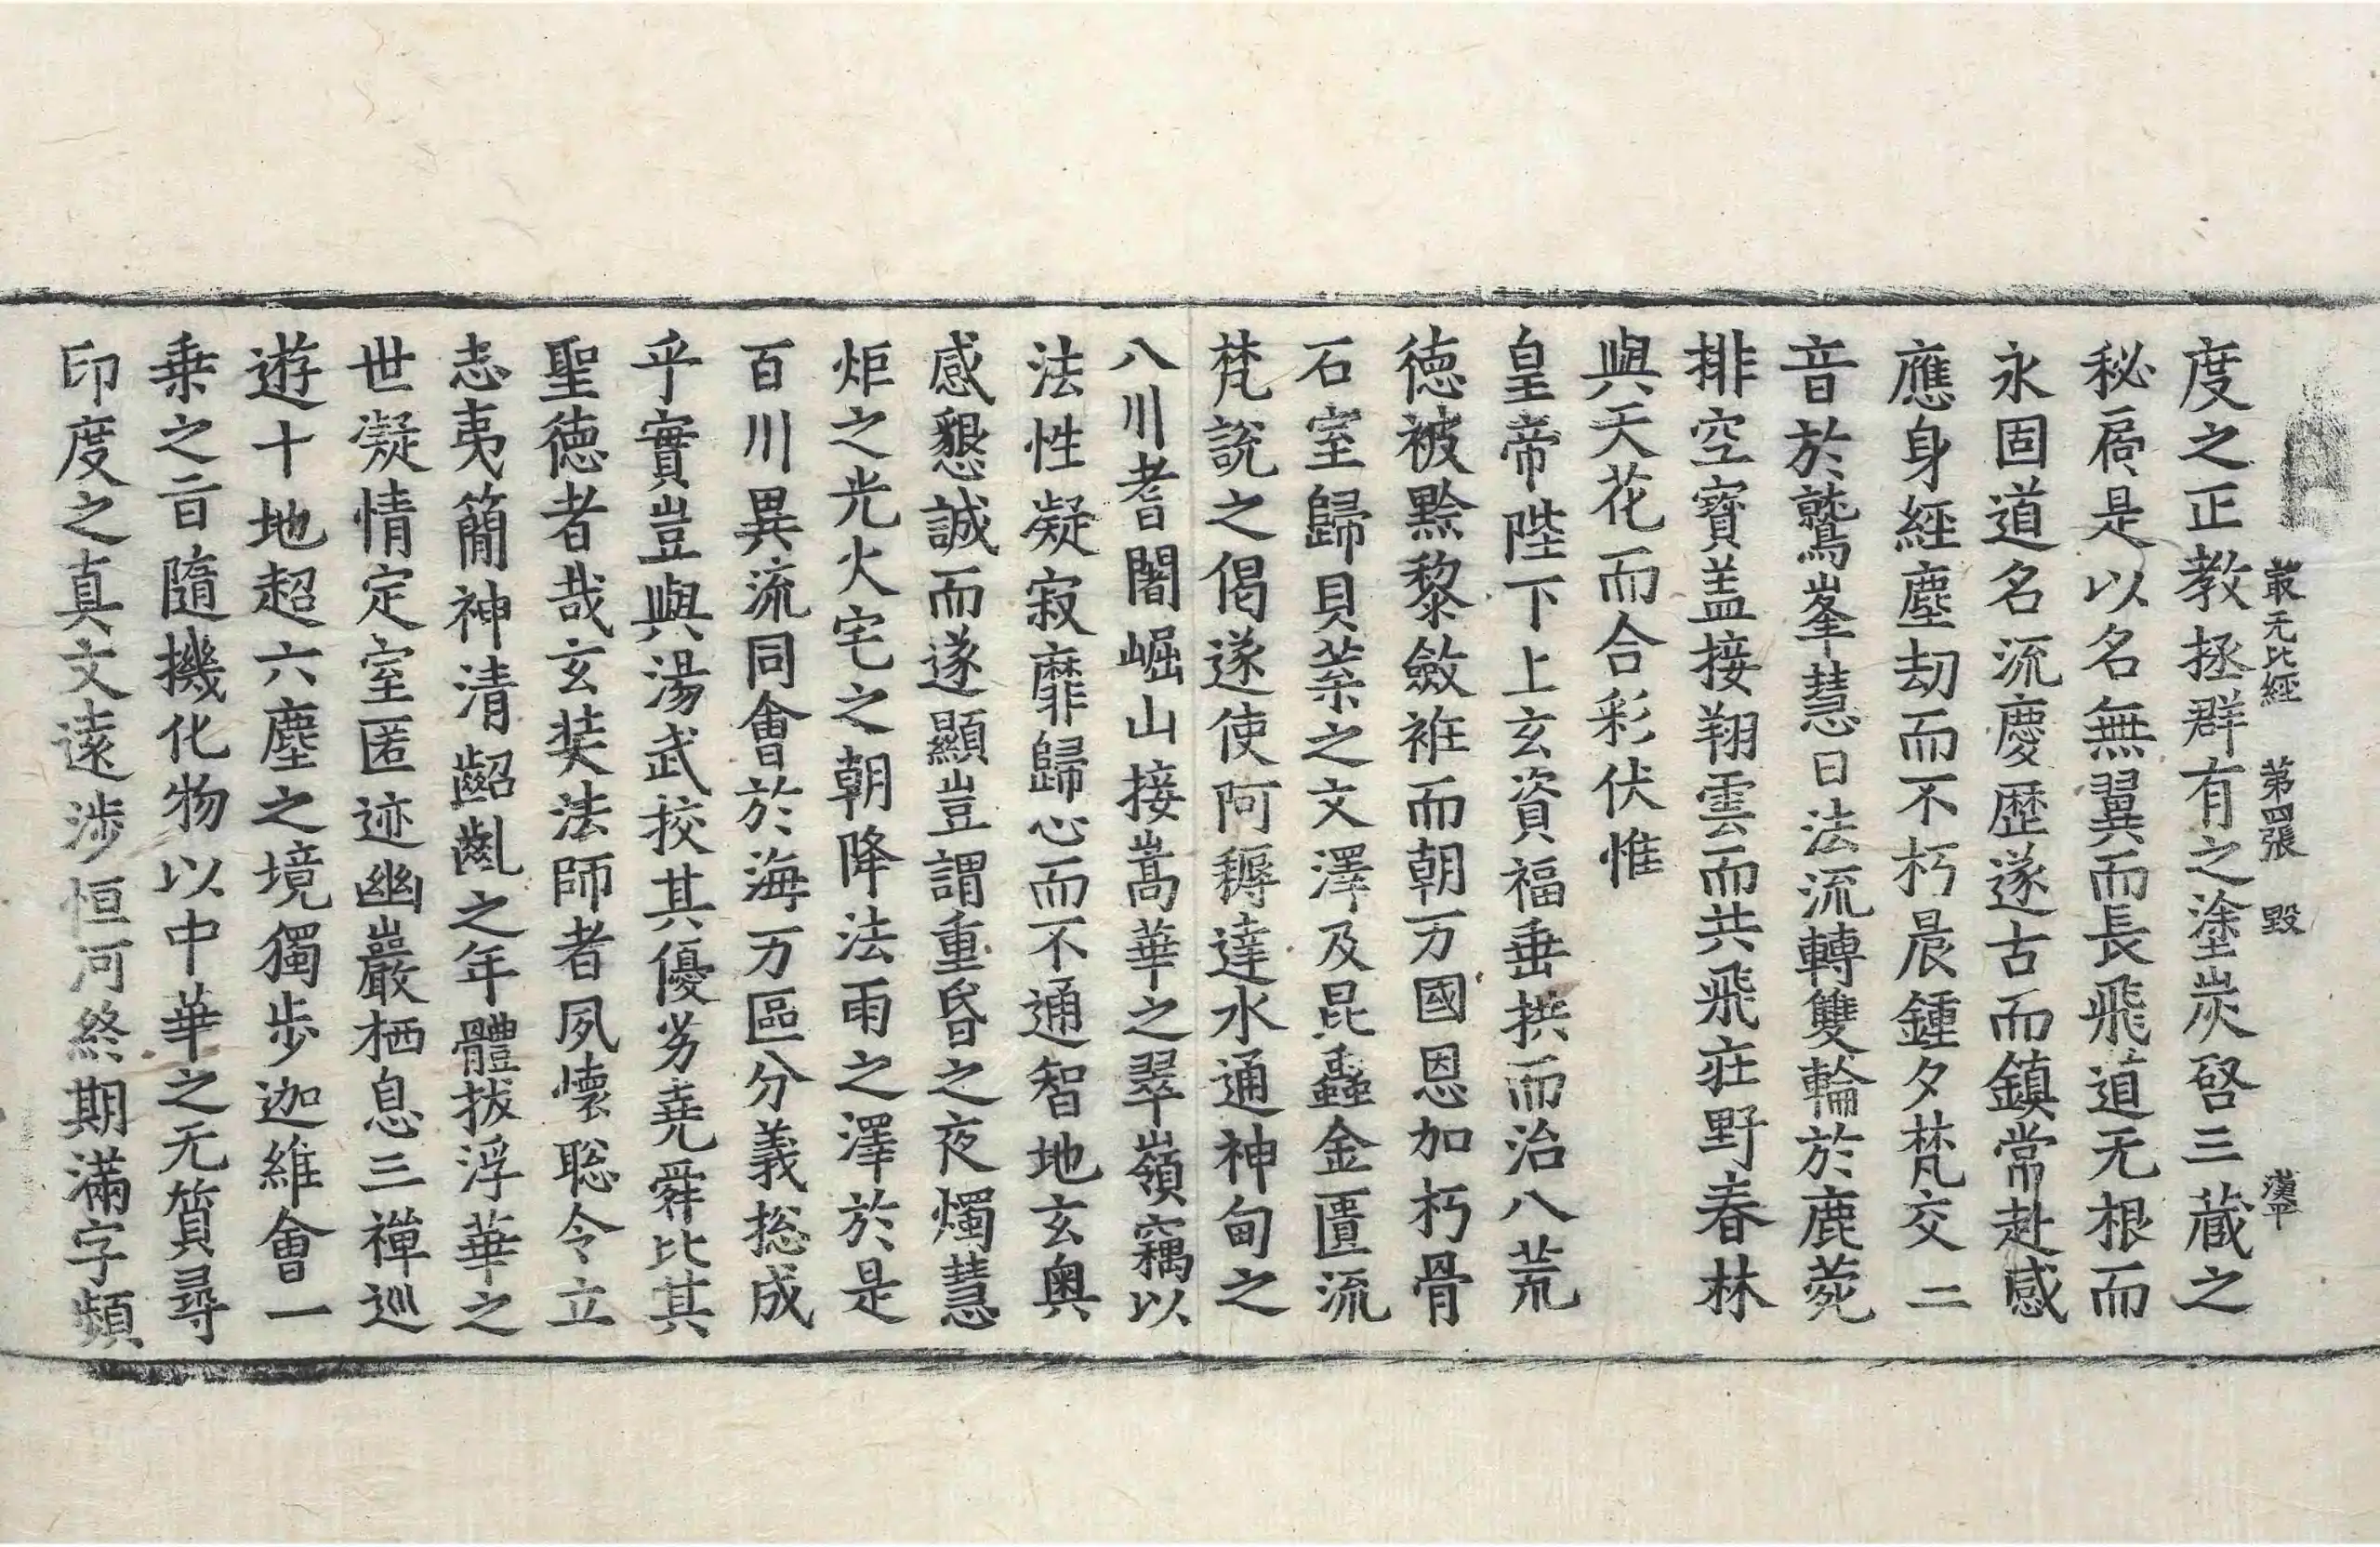 最无比經　第四張　毀　漢平
度之正教拯群有之塗炭啓三蔵之
秘扃是以名無翼而長飛道无根而
永固道名流慶歴遂古而鎮常赴感
應身經塵劫而不朽晨鍾夕梵交二
音於鷲峯慧日法流轉雙輪於鹿菀
排空寶盖接翔雲而共飛莊野春林
與天花而合彩伏惟
皇帝陛下上玄資福垂拱而治八荒
徳被黔黎斂袵而朝万國恩加朽骨
石室歸貝葉之文澤及昆蟲金匱流
梵說之偈遂使阿耨達水通神甸之
八川耆闍崛山接嵩華之翠嶺竊以
法性凝寂靡歸心而不通智地玄奥
感懇誠而遂顯豈謂重昏之夜燭慧
炬之光火宅之朝降法雨之澤於是
百川異流同會於海万區分義揔成
乎實豈與湯武挍其優劣堯舜比其
聖徳者哉玄奘法師者夙懐聡令立
志夷簡神清齠齔之年體拔浮華之
世凝情定室匿迹幽巖栖息三禪巡
遊十地超六塵之境獨步迦維會一
乗之旨隨機化物以中華之无質尋
印度之真文遠涉恒河終期滿字頻